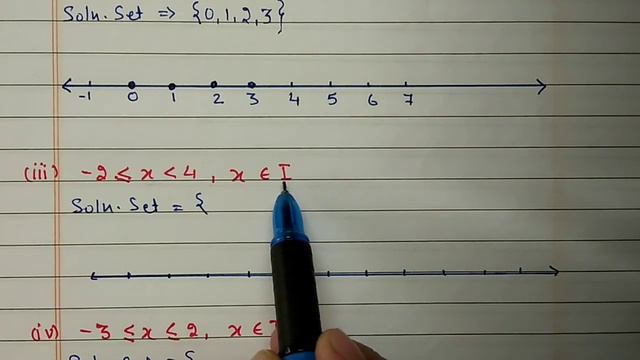 Soln. Set ⇒ {0, 1, 2, 3}
-1 0 1 2 3 4 5 6 7
(iii) -2 ≤ x < 4, x ∈ I
Soln. Set = {
(iv) -3 ≤ x ≤ 2, x ∈